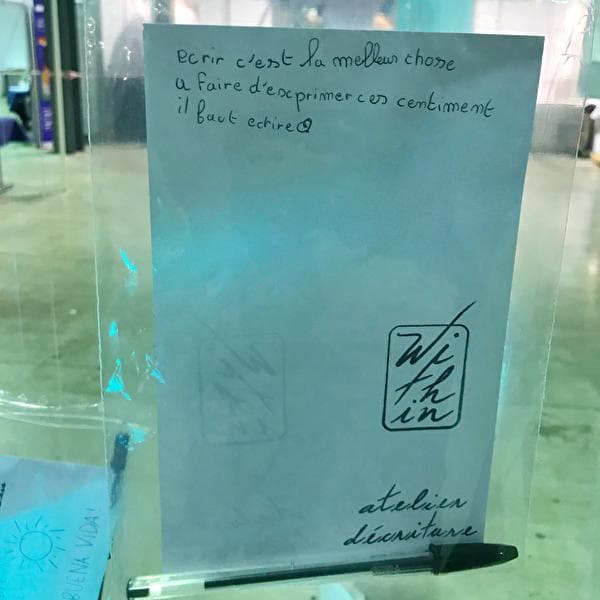 ecrir c'est la melleur chose
a faire d'exprimer ces centiment
il faut ecrire
Wi
th
in
atelier
décriture
BUENA VIDA!